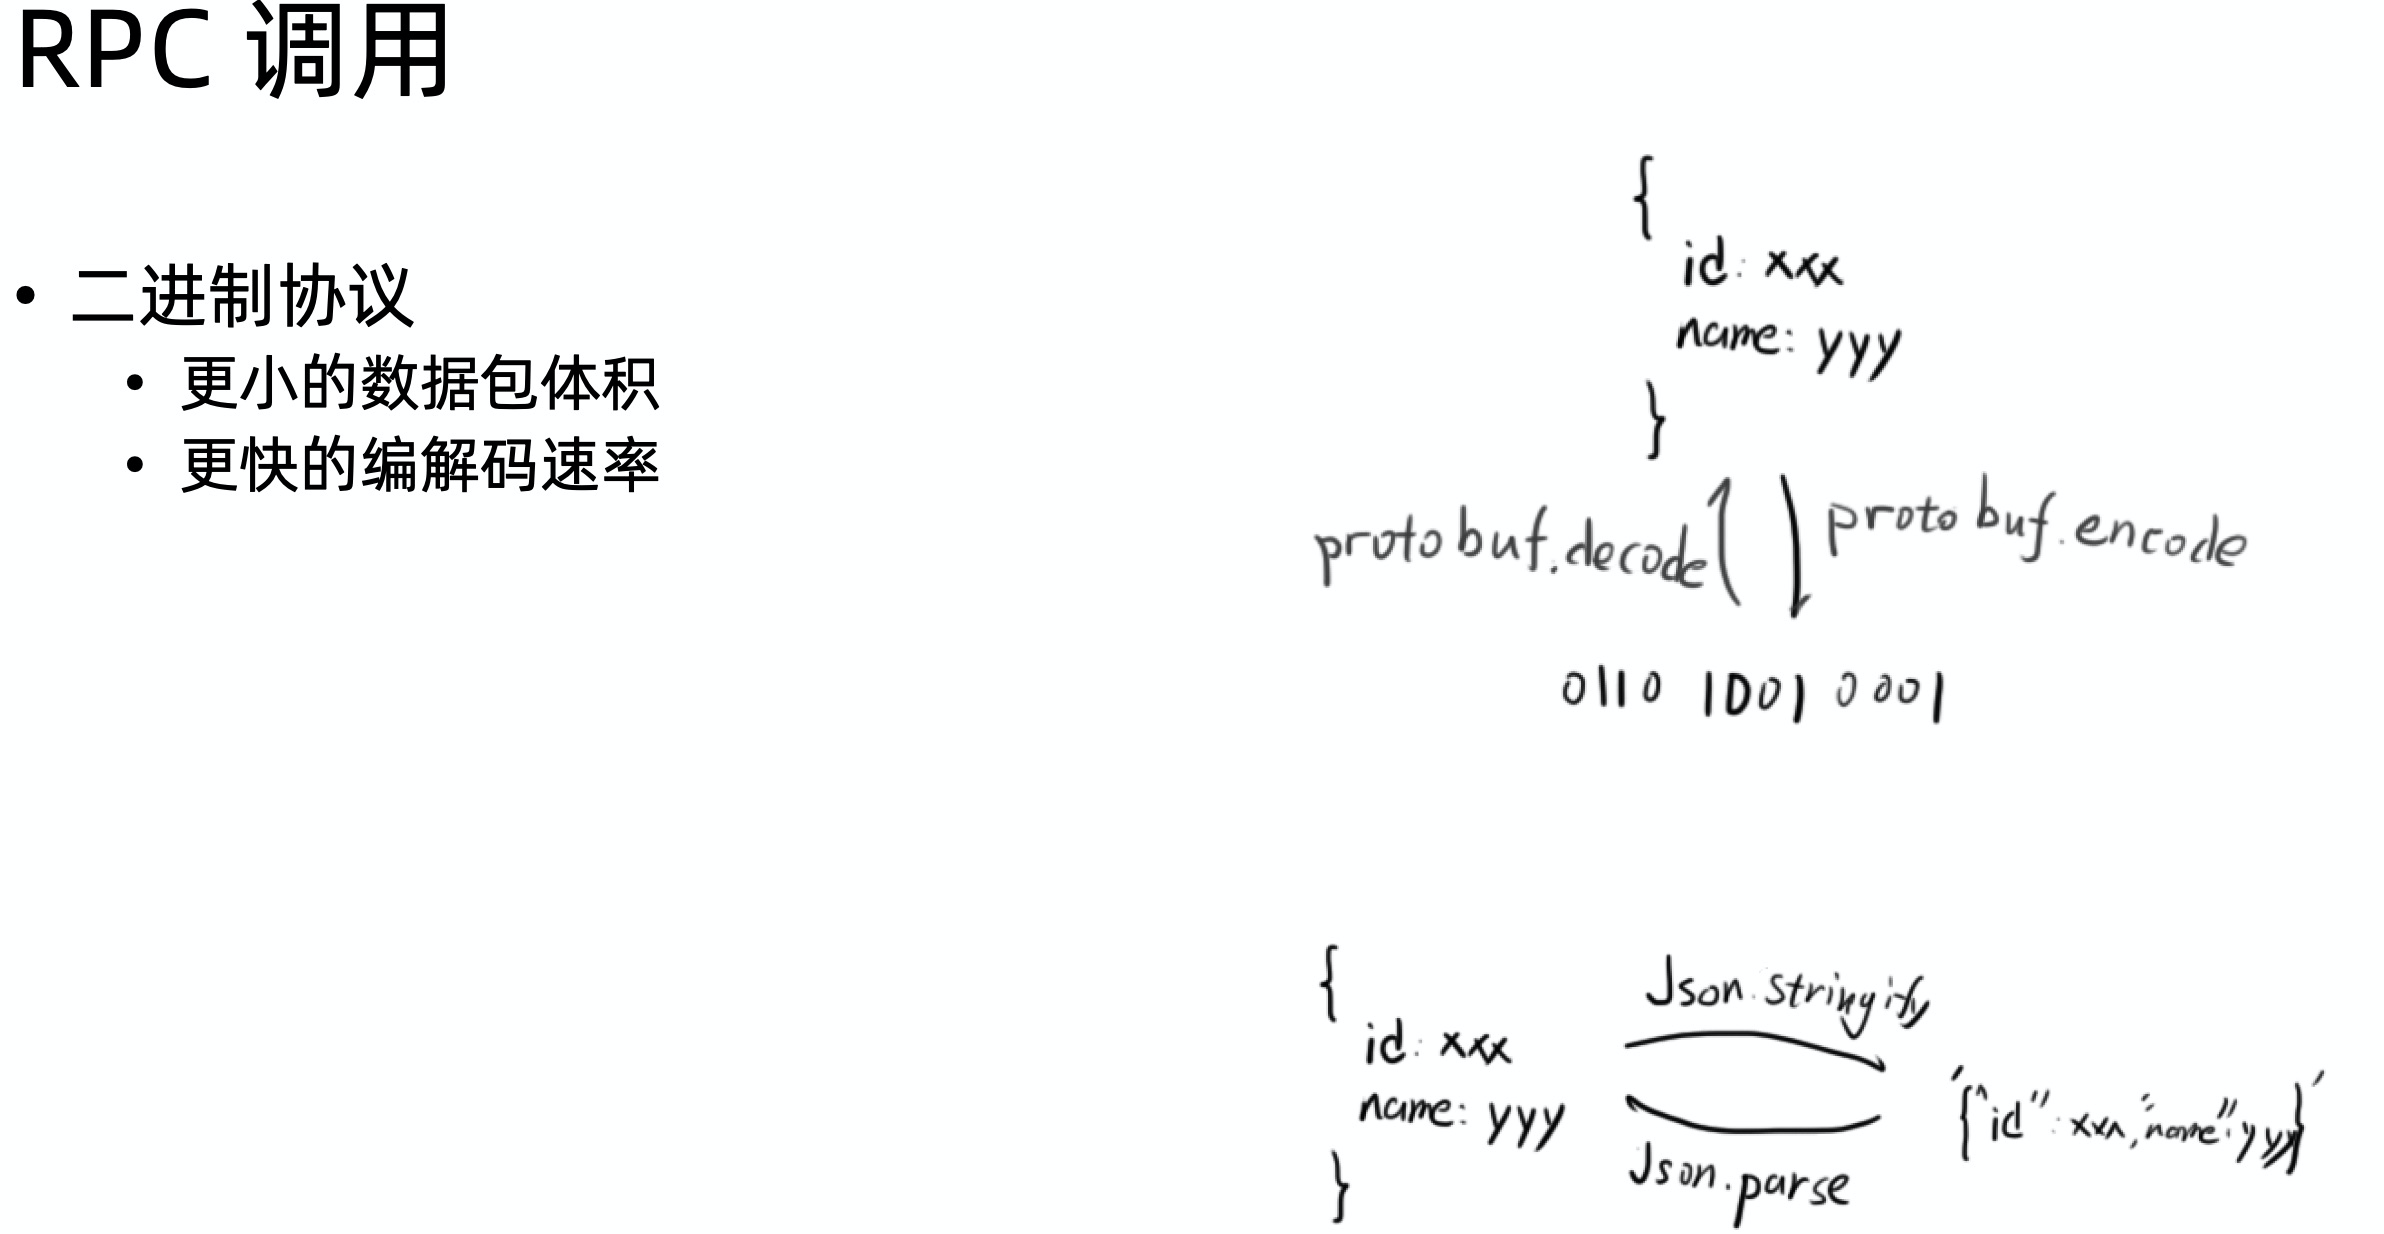 RPC 调用
• 二进制协议
• 更小的数据包体积
• 更快的编解码速率
{
id: xxx
name: yyy
}
protobuf.decode
protobuf.encode
0110 1001 0001
{
id: xxx
name: yyy
}
Json.stringify
Json.parse
'{"id": xxx, "name": yyy}'